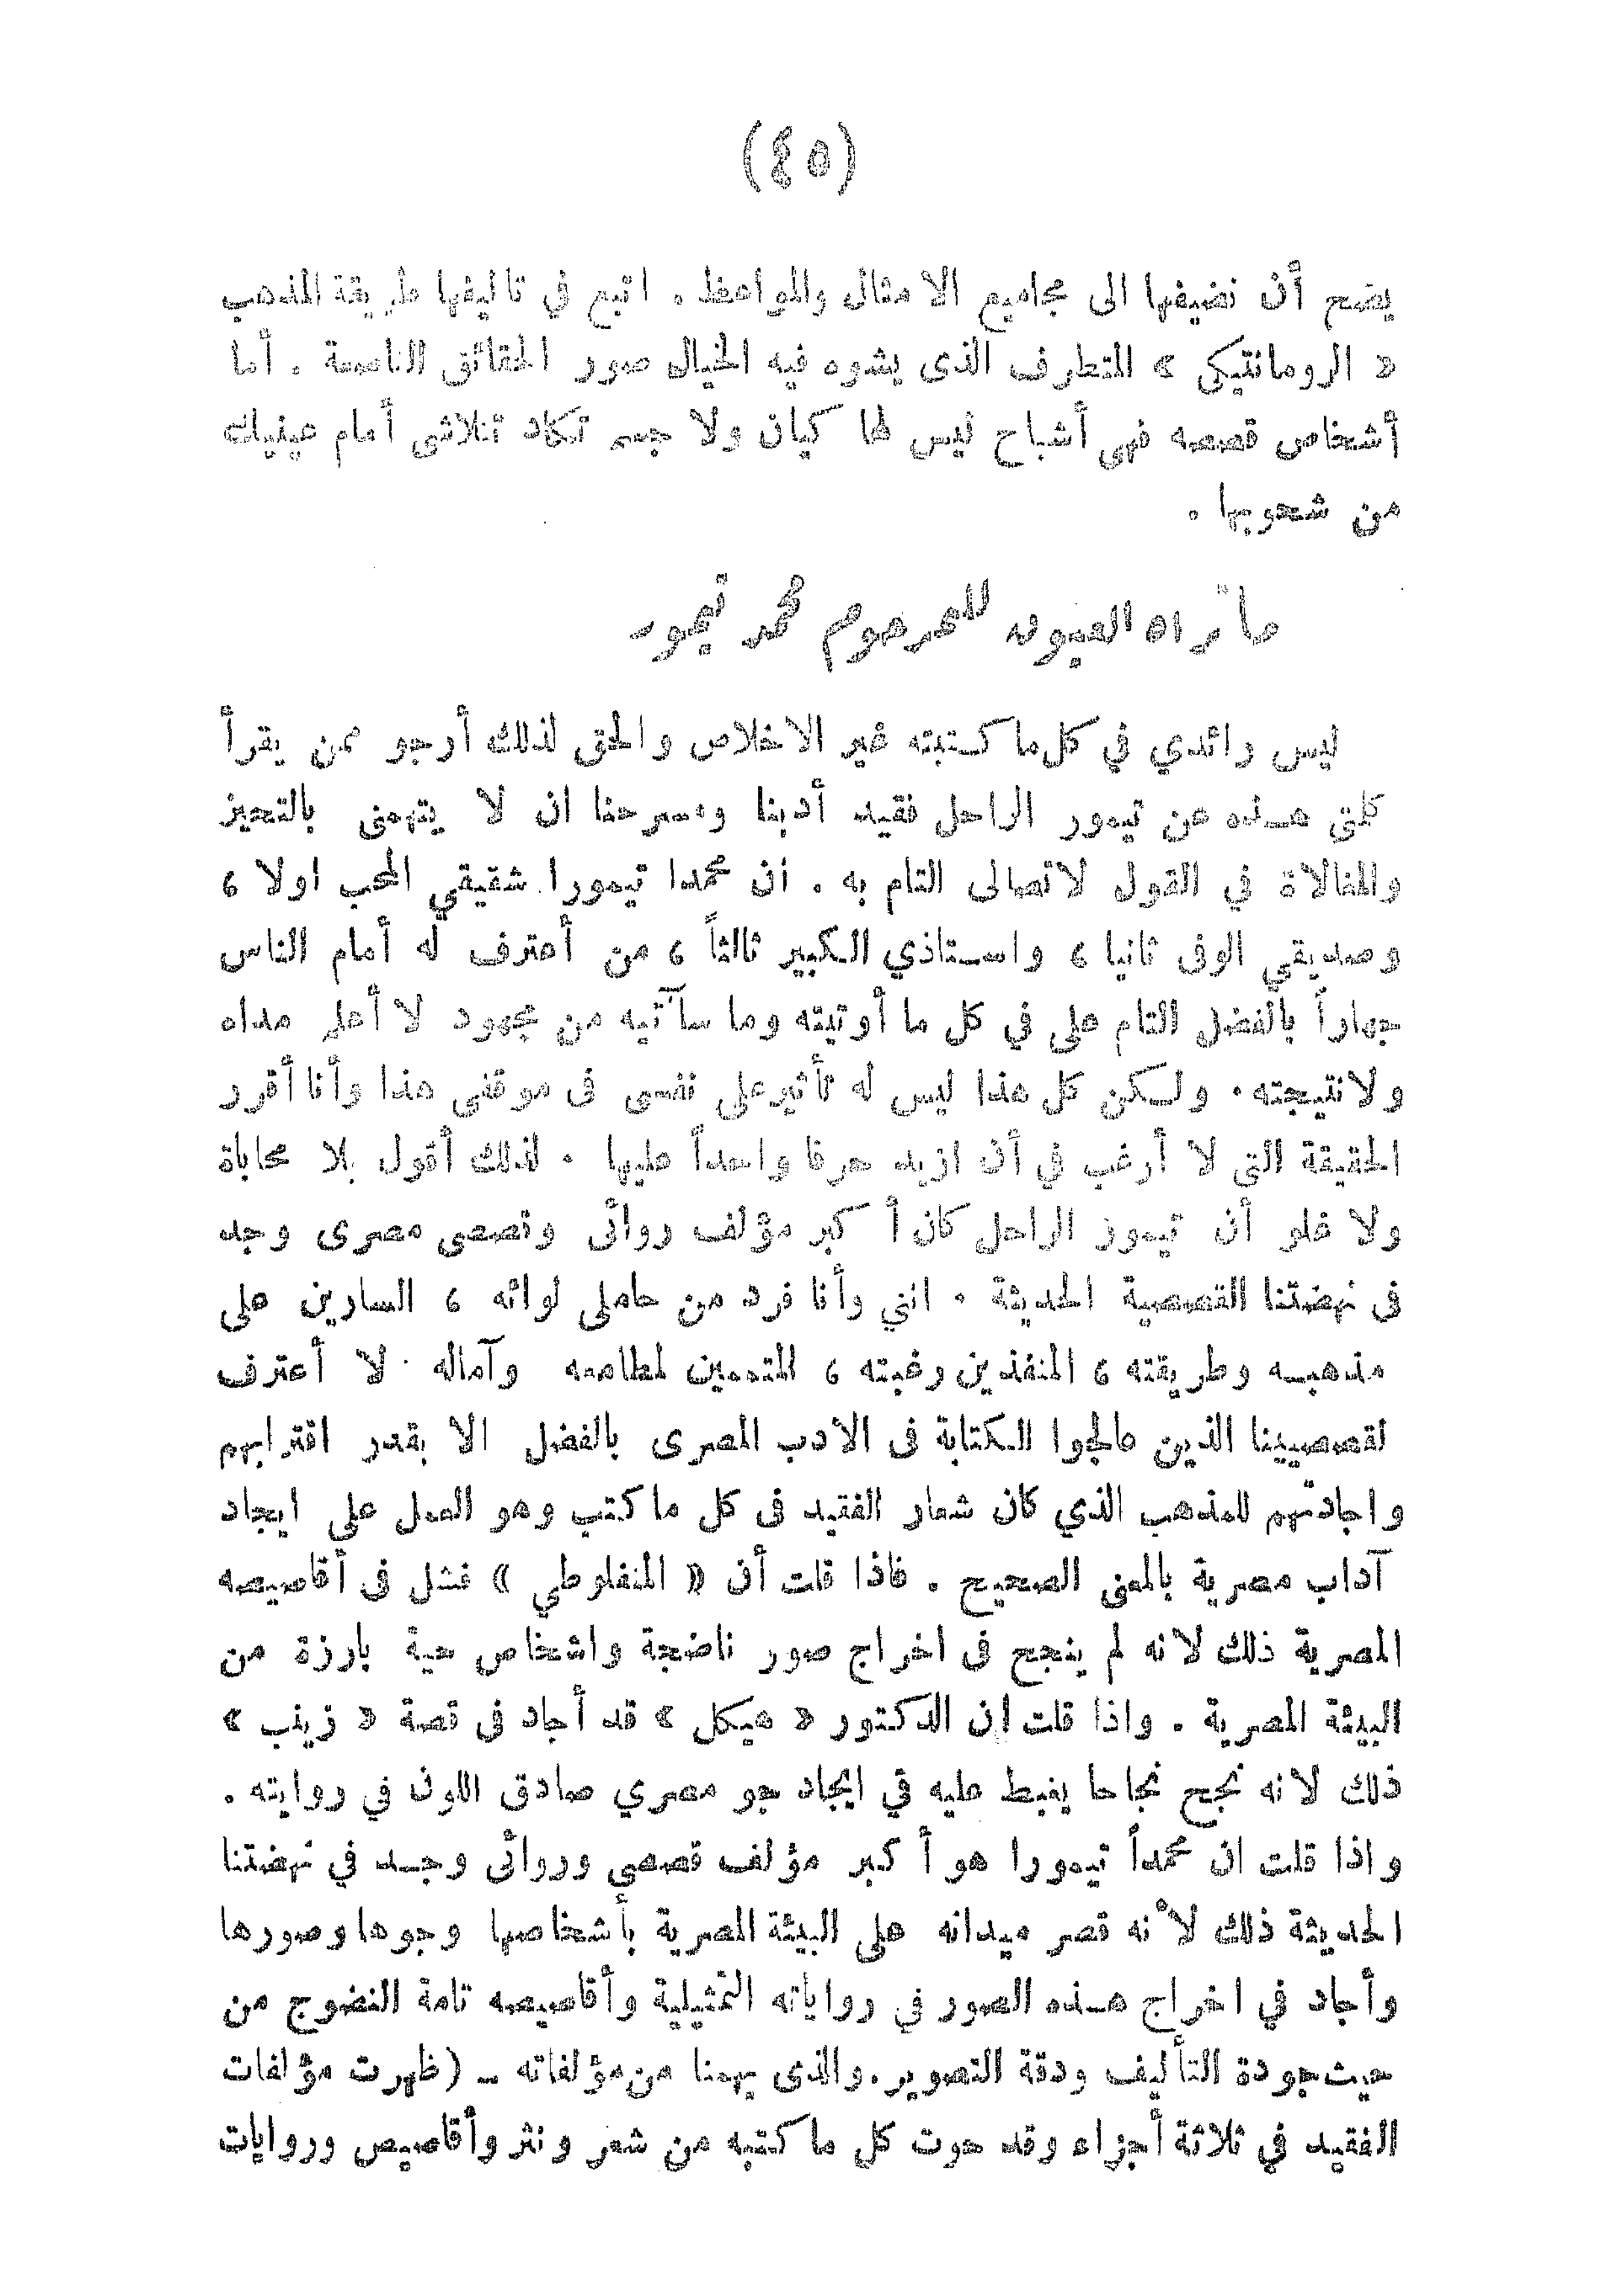 (٤٥)
يصح أن نضيفها الى مجاميع الامثال والمواعظ . اتبع في تاليفها طريقة المذهب
« الرومانتيكي » المتطرف الذى يشوه فيه الخيال صور الحقائق الناصعة . أما
أشخاص قصصه فهى أشباح ليس لها كيان ولا جسم تكاد تتلاشى أمام عينيك
من شحوبها .
ما تراه العيون للمرحوم محمد تيمور
ليس رائدي في كل ما كتبته غير الاخلاص والحق لذلك أرجو ممن يقرأ
كلمتى هذه عن تيمور الراحل فقيد أدبنا ومسرحنا ان لا يتهمنى بالتحيز
والمغالاة في القول لاتصالى التام به . ان محمدا تيمورا شقيقي المحب اولا ،
وصديقي الوفى ثانيا ، واستاذي الكبير ثالثاً ، من أعترف له أمام الناس
جهاراً بالفضل التام على في كل ما أوتيته وما سآتيه من مجهود لا أعلم مداه
ولا نتيجته . ولكن كل هذا ليس له تأثير على نفسى فى موقفى هذا وأنا أقرر
الحقيقة التى لا أرغب في أن ازيد حرفا واحداً عليها . لذلك أقول بلا محاباة
ولا غلو أن تيمور الراحل كان أكبر مؤلف روائى وقصصى مصرى وجد
فى نهضتنا القصصية الحديثة . انني وأنا فرد من حاملى لوائه ، السارين على
مذهبه وطريقته ، المنفذين رغبته ، المتممين لمطامعه وآماله . لا أعترف
لقصصيينا الذين عالجوا الكتابة فى الادب المصرى بالفضل الا بقدر اقترابهم
واجادتهم للمذهب الذي كان شعار الفقيد فى كل ما كتب وهو العمل علي ايجاد
آداب مصرية بالمعنى الصحيح . فاذا قلت أن « المنفلوطي » فشل فى أقاصيصه
المصرية ذلك لانه لم ينجح فى اخراج صور ناضجة واشخاص حية بارزة من
البيئة المصرية . واذا قلت ان الدكتور « هيكل » قد أجاد فى قصة « زينب »
ذلك لانه نجح نجاحا يغبط عليه في ايجاد جو مصري صادق اللون في روايته .
واذا قلت ان محمداً تيمورا هو أكبر مؤلف قصصى وروائى وجد في نهضتنا
الحديثة ذلك لأنه قصر ميدانه على البيئة المصرية بأشخاصها وجوها وصورها
وأجاد في اخراج هذه الصور في رواياته التمثيلية وأقاصيصه تامة النضوج من
حيث جودة التأليف ودقة التصوير . والذى يهمنا من مؤلفاته – (ظهرت مؤلفات
الفقيد في ثلاثة أجزاء وقد حوت كل ما كتبه من شعر ونثر وأقاصيص وروايات